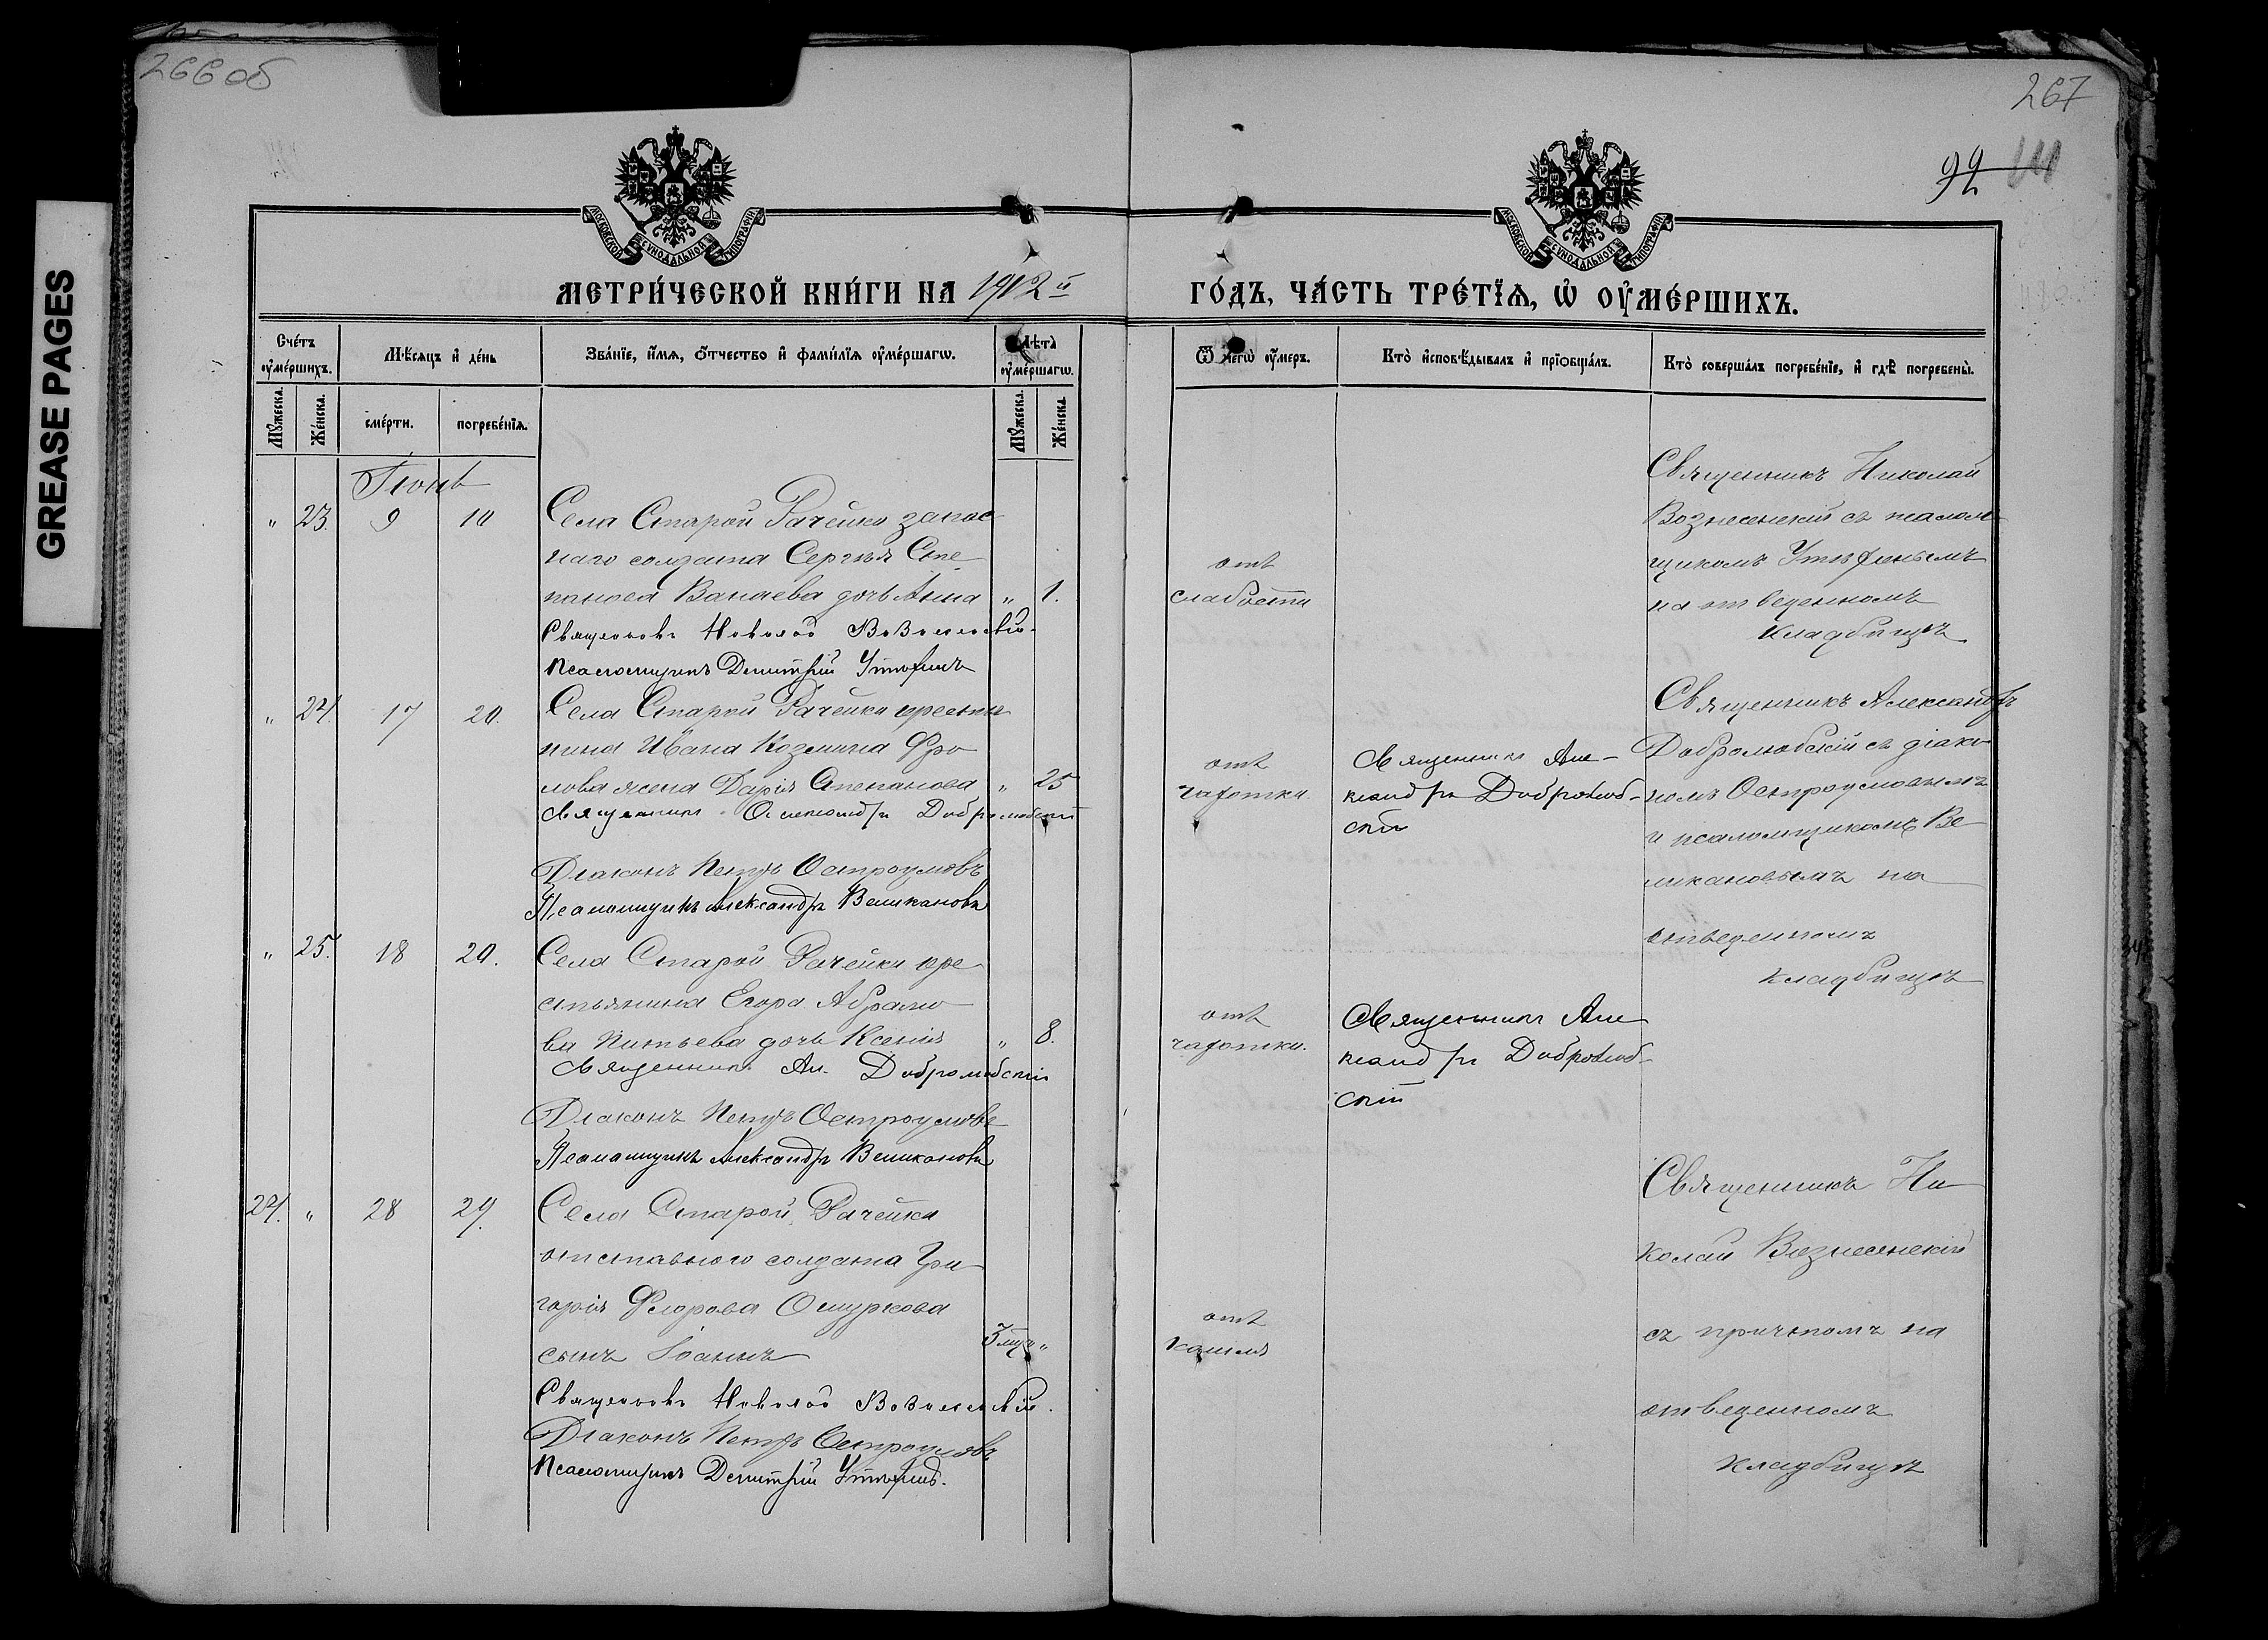 266об
267
GREASE PAGES
92
МОСКОВСКОЙ СѴНОДАЛЬНОЙ ТИПОГРАФІИ
МОСКОВСКОЙ СѴНОДАЛЬНОЙ ТИПОГРАФІИ
МЕТРИ́ЧЕСКОЙ КНИ́ГИ НА 1912й
ГО́ДЪ, ЧА́СТЬ ТРЕ́ТЇѦ, Ѽ ОУ҆МЕ́РШИХЪ.
Сче́тъ оу҆ме́ршихъ.
Мѣ́сяцъ и҆ де́нь
Зва́нїе, и҆́мѧ, ѻ҆́тчество и҆ фами́лїѧ оу҆ме́ршагѡ.
Лѣ́та оу҆ме́ршагѡ.
Ѿ чегѡ̀ оу҆́меръ.
Кто̀ и҆сповѣ́дывалъ и҆ прїѻбща́лъ.
Кто̀ соверша́лъ погребе́нїе, и҆ гдѣ̀ погребены̀.
Мꙋ́жеска.
Же́нска.
сме́рти.
погребе́нїѧ.
Мꙋ́жеска.
Же́нска.
Іюнь
" 23. 9 10
Села Старой Рачейки запас
наго солдата Сергѣя Сте
панова Ванаева дочь Анна " 1.
Священникъ Николай Вознесенскій.
Псаломщикъ Димитрій Утѣфинъ
отъ
слабости
Священникъ Николай
Вознесенскій съ псалом
щикомъ Утѣфинымъ
на отведенномъ
кладбищѣ
" 24. 17 20.
Села Старой Рачейки крестья
нина Ивана Козмина Фро
лова жена Дарія Степанова " 25
Священникъ Александръ Добролюбскій
Діаконъ Петръ Остроумовъ
Псаломщикъ Александръ Великановъ
отъ
чахотки.
Священникъ Але-
ксандръ Добролюб-
скій
Священникъ Александръ
Добролюбскій съ діако
номъ Остроумовымъ
и псаломщикомъ Ве
ликановымъ на
отведенномъ
кладбищѣ
" 25. 18 20.
Села Старой Рачейки кре
стьянина Егора Абрамо
ва Питьева дочь Ксенія " 8.
Священникъ Ал. Добролюбскій
Діаконъ Петръ Остроумовъ
Псаломщикъ Александръ Великановъ
отъ
чахотки.
Священникъ Але
ксандръ Добролюб-
скій
24. " 28 29.
Села Старой Рачейки
отставного солдата Гри
горія Федорова Ошуркова
сынъ Іоаннъ 3 мѣс. "
Священникъ Николай Вознесенскій.
Діаконъ Петръ Остроумовъ
Псаломщикъ Димитрій Утѣфинъ.
отъ
кашля
Священникъ Ни
колай Вознесенскій
съ причтомъ на
отведенномъ
кладбищѣ